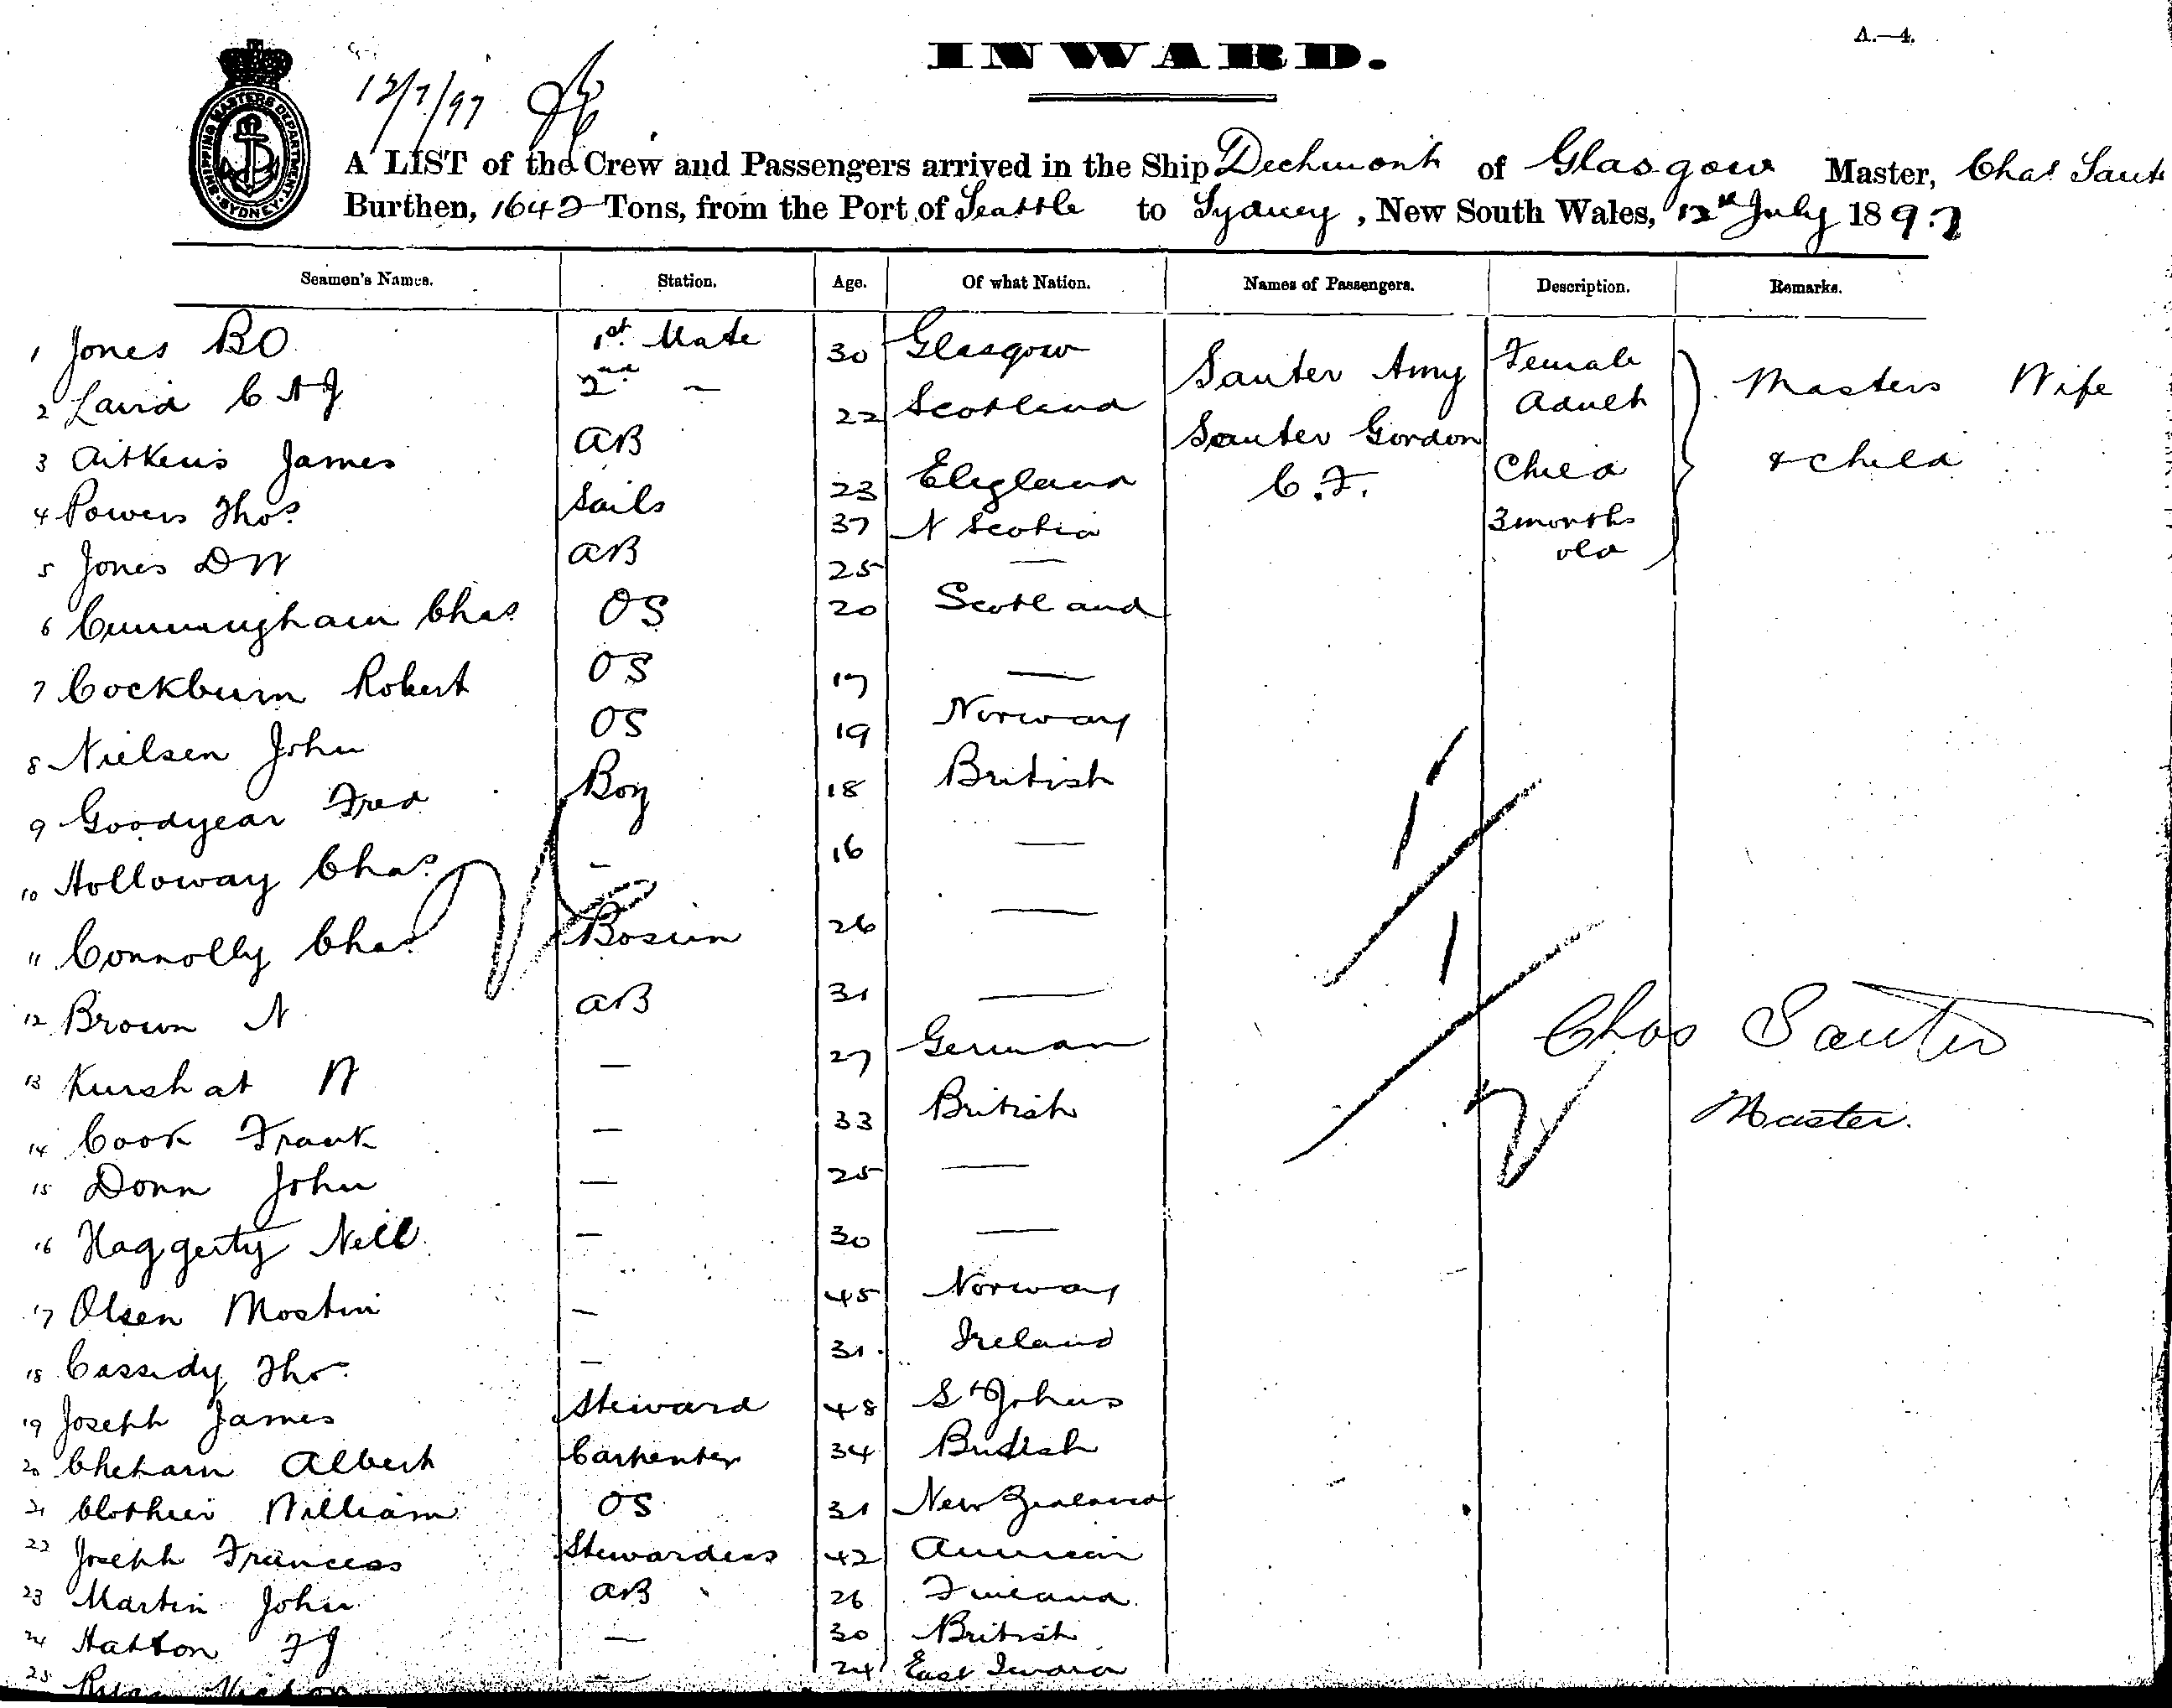 A.—4.
INWARD.
12/7/97
SHIPPING MASTERS DEPARTMENT SYDNEY
A LIST of the Crew and Passengers arrived in the Ship Dechmont of Glasgow Master, Chas Saut
Burthen, 1642 Tons, from the Port of Seattle to Sydney, New South Wales, 12th July 1897
Seamen's Names. Station. Age. Of what Nation. Names of Passengers. Description. Remarks.
1 Jones BO 1st Mate 30 Glasgow Sauter Amy Female Adult Masters Wife
2 Laird C A J 2nd — 22 Scotland Sauter Gordon C.F. Child 3 months old & child
3 Aitkens James AB 23 England
4 Powers Thos Sails 37 N Scotia
5 Jones DW AB 25 —
6 Cunningham Chas OS 20 Scotland
7 Cockburn Robert OS 17 —
8 Nielsen John OS 19 Norway
9 Goodyear Fred Boy 18 British
10 Holloway Chas — 16 —
11 Connolly Chas Bosun 26 —
12 Brown N AB 31 —
13 Kurshat W — 27 German
14 Cook Frank — 33 British
15 Donn John — 25 —
16 Haggerty Neil — 30 —
17 Olsen Mostin — 45 Norway
18 Cassidy Thos — 31 Ireland
19 Joseph James Steward 48 St Johns
20 Cheham Albert Carpenter 34 British
21 Clothier William OS 31 New Zealand
22 Joseph Francess Stewardess 42 American
23 Martin John AB 26 Finland
24 Hatton FJ — 30 British
25 — 24 East India
Chas Sauter
Master.